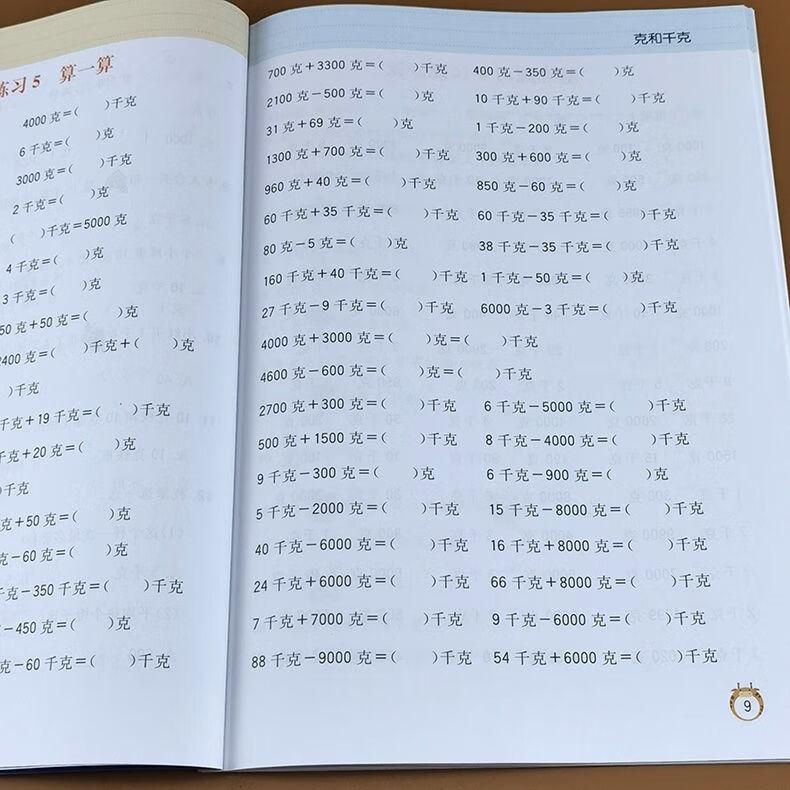 练习5 算一算
4000 克=( )千克
6 千克=( )克
3000 克=( )千克
2 千克=( )克
( )千克=5000 克
4 千克=( )克
3 千克=( )克
50 克+50 克=( )克
2400 克=( )千克+( )克
)千克
千克+19 千克=( )千克
千克+20 克=( )克
)千克
克+50 克=( )克
克-60 克=( )克
千克-350 千克=( )千克
-450 克=( )克
克-60 千克=( )千克
克和千克
700 克+3300 克=( )千克 400 克-350 克=( )克
2100 克-500 克=( )克 10 千克+90 千克=( )千克
31 克+69 克=( )克 1 千克-200 克=( )克
1300 克+700 克=( )千克 300 克+600 克=( )克
960 克+40 克=( )千克 850 克-60 克=( )克
60 千克+35 千克=( )千克 60 千克-35 千克=( )千克
80 克-5 克=( )克 38 千克-35 千克=( )千克
160 千克+40 千克=( )千克 1 千克-50 克=( )克
27 千克-9 千克=( )千克 6000 克-3 千克=( )千克
4000 克+3000 克=( )克=( )千克
4600 克-600 克=( )克=( )千克
2700 克+300 克=( )千克 6 千克-5000 克=( )千克
500 克+1500 克=( )千克 8 千克-4000 克=( )千克
9 千克-300 克=( )克 6 千克-900 克=( )克
5 千克-2000 克=( )千克 15 千克-8000 克=( )千克
40 千克-6000 克=( )千克 16 千克+8000 克=( )千克
24 千克+6000 克=( )千克 66 千克+8000 克=( )千克
7 千克+7000 克=( )千克 9 千克-6000 克=( )千克
88 千克-9000 克=( )千克 54 千克+6000 克=( )千克
9